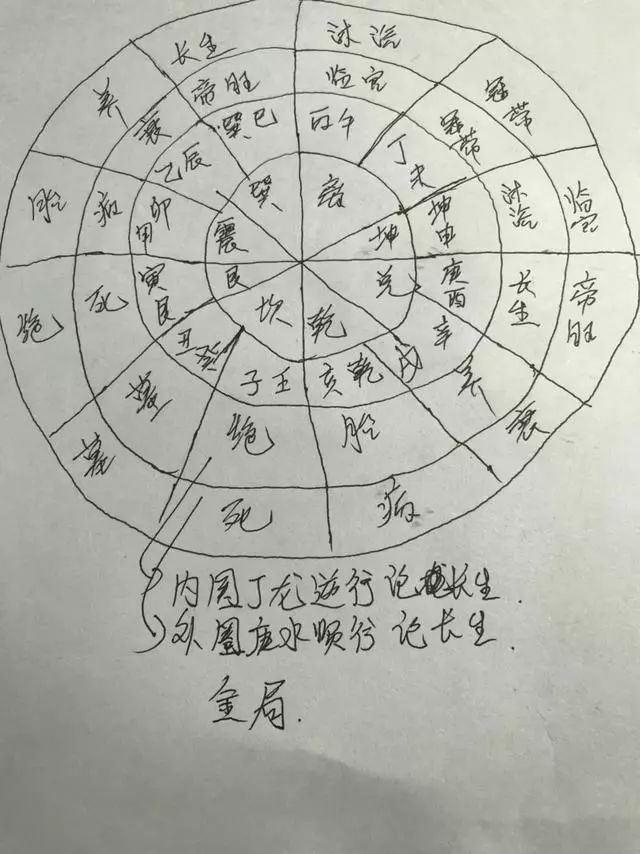 长生
沐浴
冠带
临官
帝旺
衰
病
死
墓
绝
胎
养
帝旺
临官
冠带
沐浴
长生
养
胎
绝
墓
死
病
衰
巽巳
丙午
丁未
坤申
庚酉
辛戌
亥乾
子壬
丑癸
寅艮
甲卯
乙辰
巽
离
坤
兑
乾
坎
艮
震
内圈丁龙逆行论长生.
外圈庚水顺行论长生.
金局.